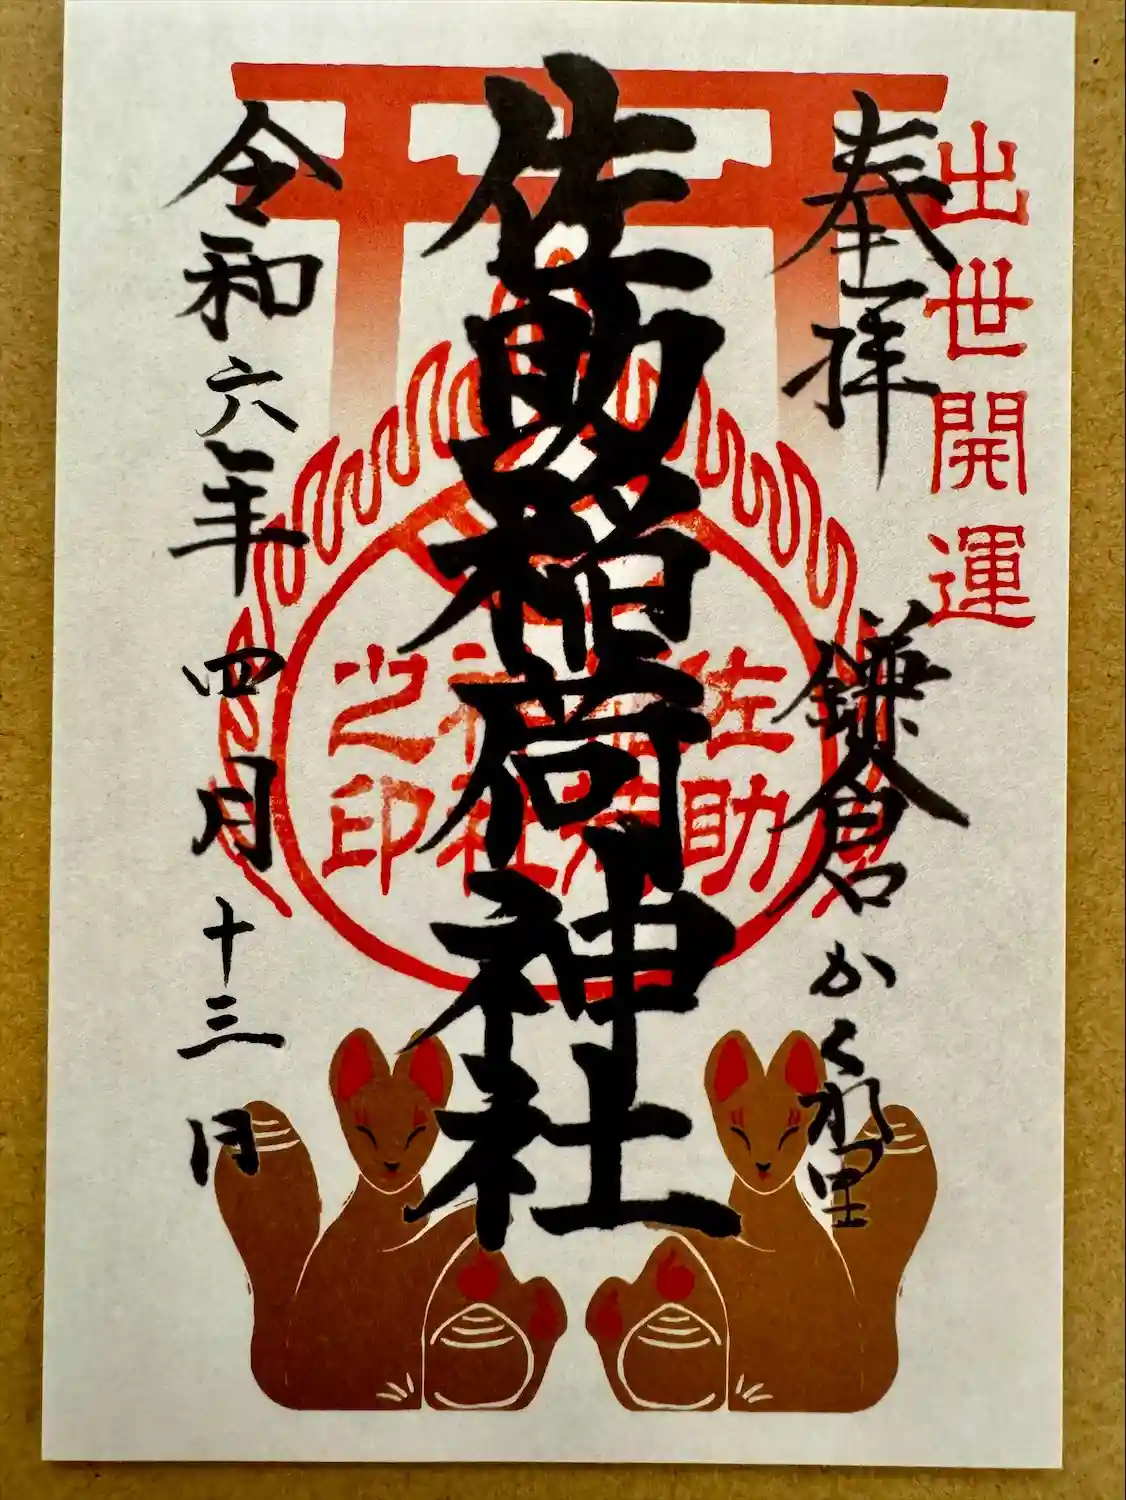 出世開運
奉拝 鎌倉かくれ里
佐助稲荷神社
佐助稲荷神社之印
令和六年四月十三日